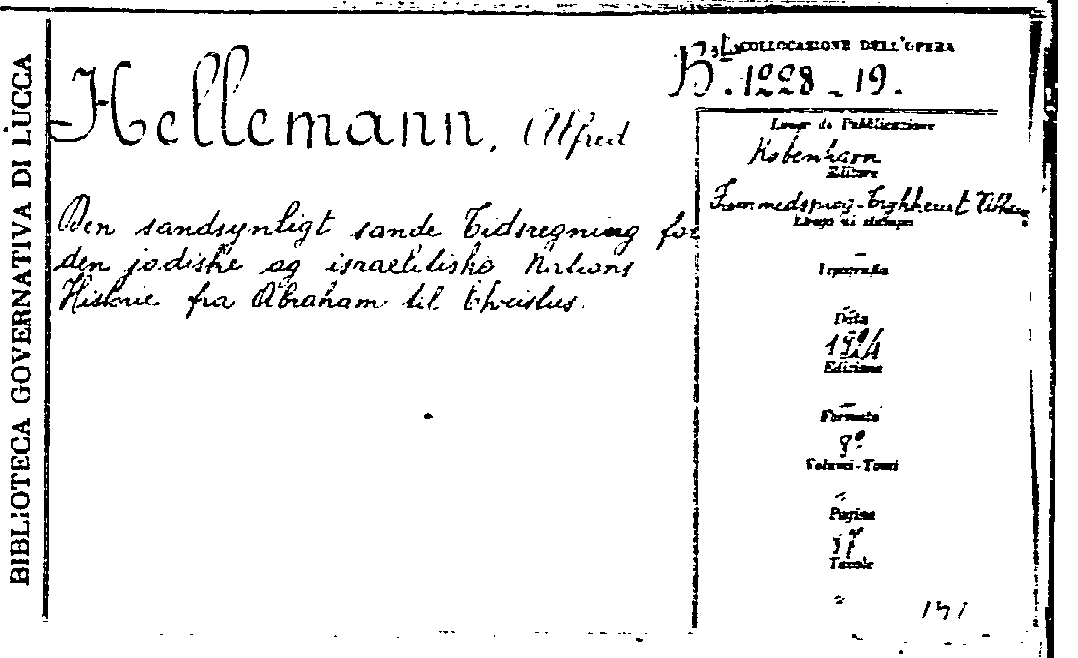 BIBLIOTECA GOVERNATIVA DI LUCCA
COLLOCAZIONE DELL'OPERA
B.ª 1228 - 19.
Hellemann, Alfred
Den sandsynligt sande Tidsregning for
den jodiske og israelitiske Nations
Historie fra Abraham til Christus.
Luogo di Pubblicazione
Kobenharn
Editore
Luogo di stampa
Tipografia
Data
Edizione
Formato
8º
Volumi-Tomi
Pagine
37
Tavole